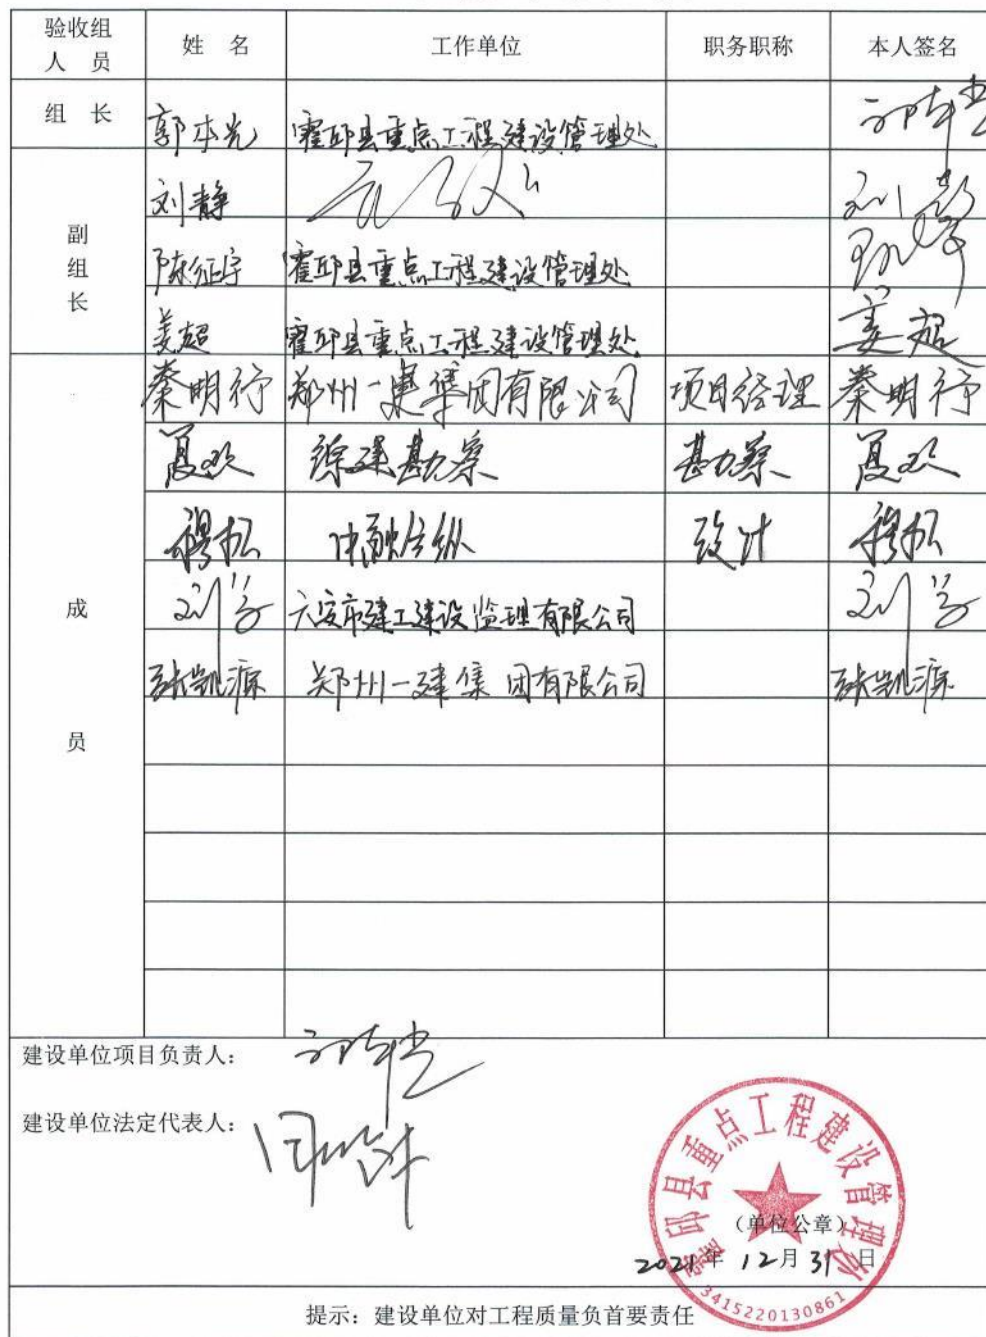 验收组人员 姓 名 工作单位 职务职称 本人签名
组 长 郭本光 霍邱县重点工程建设管理处 郭本光
副组长 刘静 刘静
陈征宇 霍邱县重点工程建设管理处
姜超 霍邱县重点工程建设管理处 姜超
成员 秦明行 郑州一建集团有限公司 项目经理 秦明行
夏欢 综建勘察 勘察 夏欢
穆松 中融合纵 设计 穆松
刘学 六安市建工建设监理有限公司 刘学
张凯源 郑州一建集团有限公司 张凯源
建设单位项目负责人： 郭本光
建设单位法定代表人：
霍邱县重点工程建设管理处
（单位公章）
2021年 12月 31 日
3415220130861
提示：建设单位对工程质量负首要责任